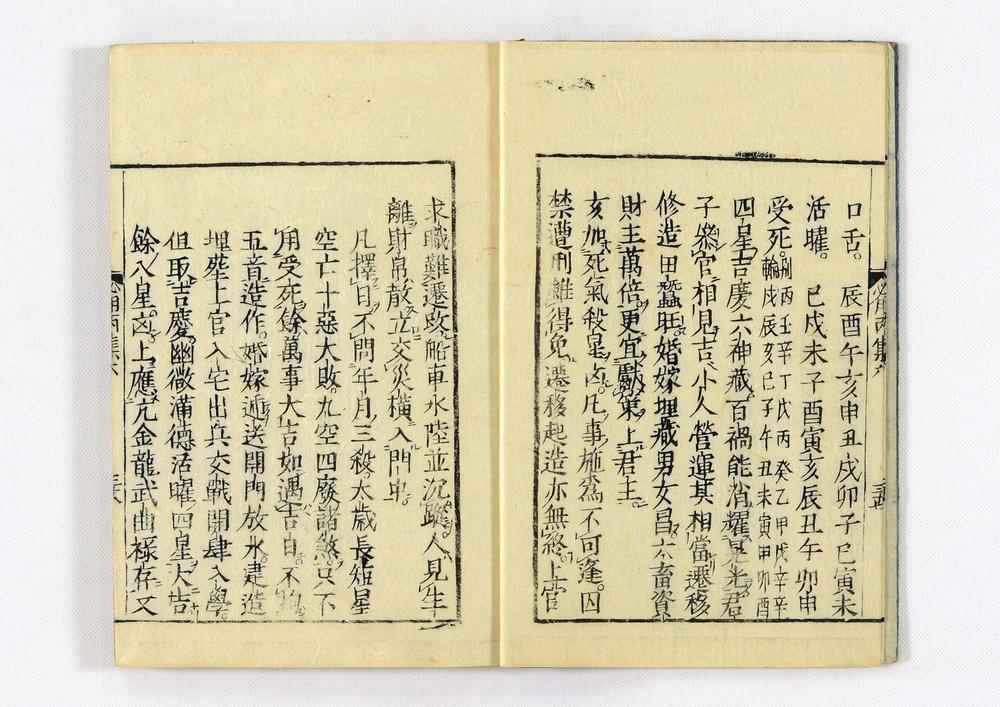 口舌。 辰酉午亥申丑戌卯子巳寅未
活曜。 巳戌未子酉寅亥辰丑午卯申
受死。
丙壬辛丁戊丙癸乙甲戊辛辛
戌辰亥巳子午丑未寅申卯酉
四星吉慶六神藏百禍能消耀見光君
子叅官相見吉小人營運其相當遷移
修造田蠶旺婚嫁埋藏男女昌六畜資
財主萬倍更宜獻策上君王
亥加死氣殺星凶凡事施爲不可逢囚
禁遭刑難得免遷移起造亦無終上官
求職難遷改船車水陸並沉蹤人見生
離財帛散立交災橫入門中
凡擇日不問年月三殺太歲長短星
空亡十惡大敗九空四廢諸煞只不
用受死餘萬事大吉如遇吉日不
五音造作婚嫁遞送開門放水建造
埋塟上官入宅出兵交戰開肆入學
但取吉慶幽微滿德活曜四星大吉
餘八星凶上應亢金龍武曲祿存又